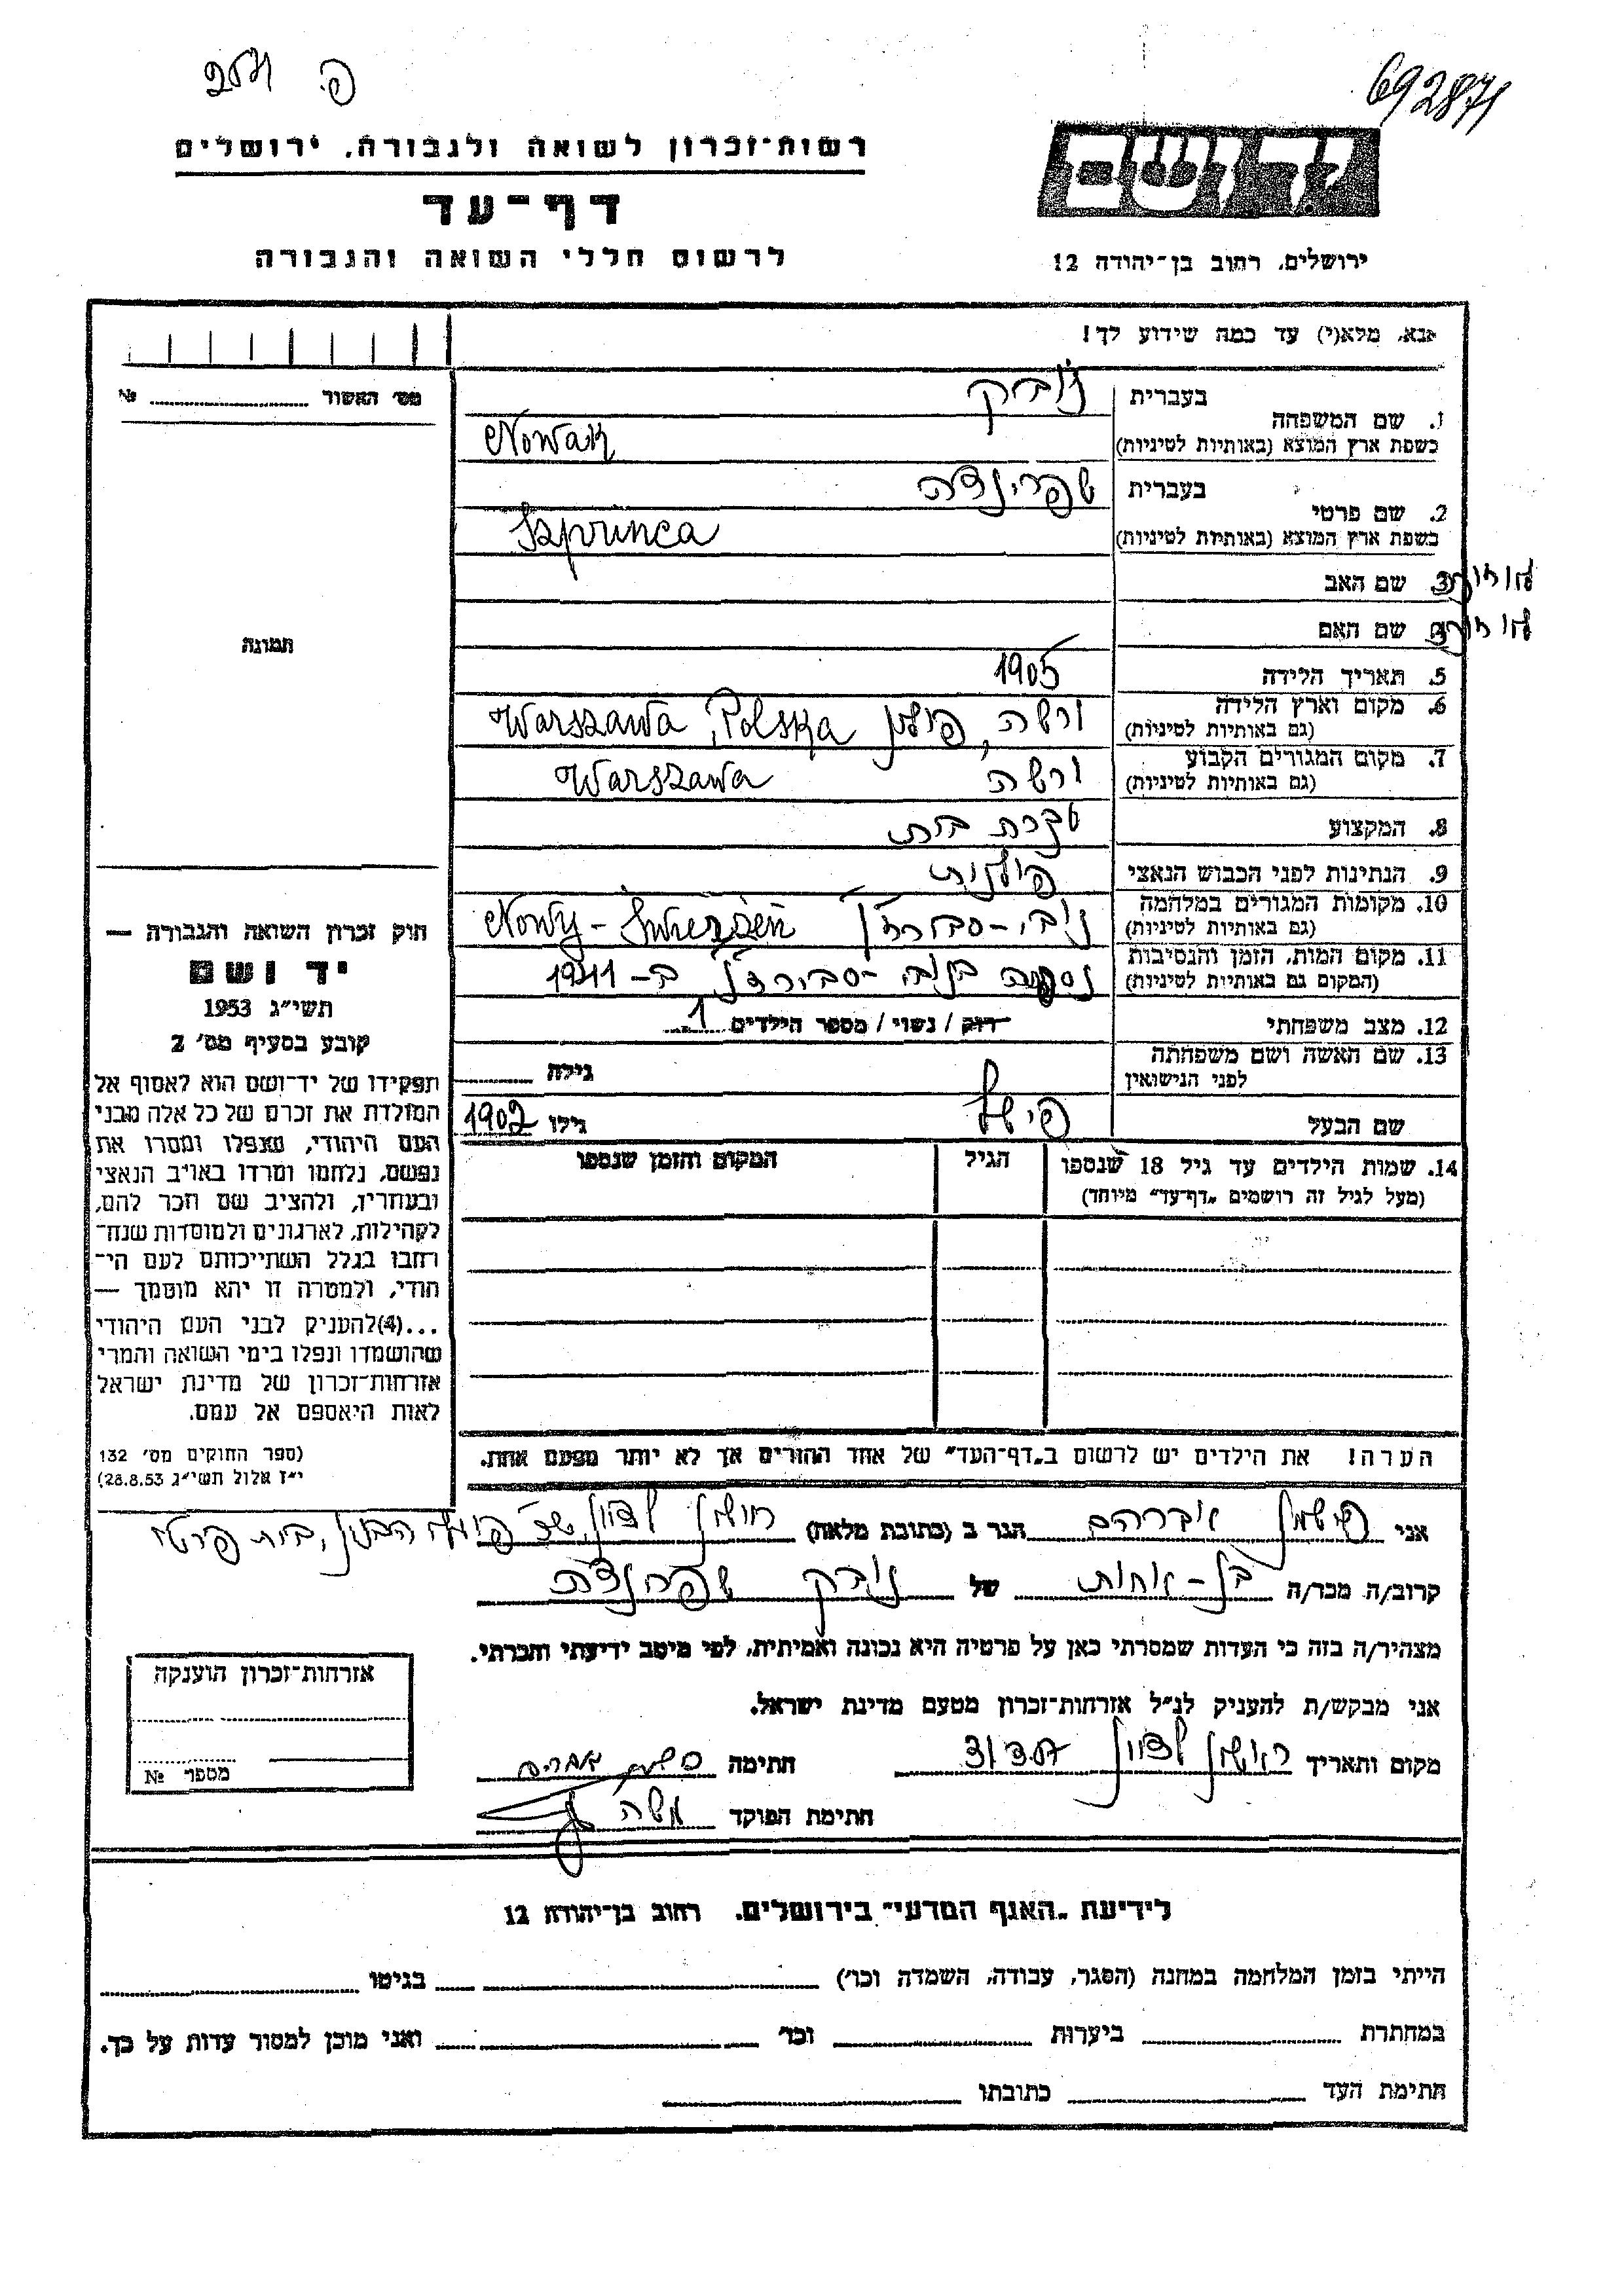 692871
רשות־זכרון לשואה ולגבורה. ירושלים
דף־עד
לרשום חללי השואה והגבורה
ירושלים, רחוב בן־יהודה 12
אנא, מלא(י) עד כמה שידוע לך!
מס׳ האשור № 
1. שם המשפחה בעברית נובק
כשפת ארץ המוצא (באותיות לטיניות) Nowak
2. שם פרטי בעברית שפרינצה
כשפת ארץ המוצא (באותיות לטיניות) Szprinca
3. שם האב
4. שם האם
תמונה
5. תאריך הלידה 1905
6. מקום וארץ הלידה (גם באותיות לטיניות) ורשה, פולין Warszawa, Polska
7. מקום המגורים הקבוע (גם באותיות לטיניות) ורשה Warszawa
8. המקצוע עקרת בית
9. הנתינות לפני הכבוש הנאצי פולנית
10. מקומות המגורים במלחמה (גם באותיות לטיניות) Nowy-Swierżeń
11. מקום המות, הזמן והנסיבות (המקום גם באותיות לטיניות) ב-1941
12. מצב משפחתי רווק / נשוי / מספר הילדים 1
13. שם האשה ושם משפחתה לפני הנישואין גילה
שם הבעל פישל גילו 1902
14. שמות הילדים עד גיל 18 שנספו הגיל המקום והזמן שנספו
(מעל לגיל זה רושמים „דף־עד״ מיוחד)
הערה! את הילדים יש לרשום ב„דף־העד״ של אחד ההורים אך לא יותר מפעם אחת.
חוק זכרון השואה והגבורה —
יד ושם
תשי״ג 1953
קובע בסעיף מס׳ 2
תפקידו של יד־ושם הוא לאסוף אל
המולדת את זכרם של כל אלה מבני
העם היהודי, שנפלו ומסרו את
נפשם, נלחמו ומרדו באויב הנאצי
ובעוזריו, ולהציב שם וזכר להם,
לקהילות, לארגונים ולמוסדות שנח־
רבו בגלל השתייכותם לעם הי־
הודי, ולמטרה זו יהא מוסמך —
...(4)להעניק לבני העם היהודי
שהושמדו ונפלו בימי השואה והמרי
אזרחות־זכרון של מדינת ישראל
לאות היאספם אל עמם.
(ספר החוקים מס׳ 132
י״ז אלול תשי״ג 28.8.53)
אני אברהם הגר ב (כתובת מלאה) לציון
קרוב/ה מכר/ה בן-אחות של נובק שפרינצה
מצהיר/ה בזה כי העדות שמסרתי כאן על פרטיה היא נכונה ואמיתית, לפי מיטב ידיעתי והכרתי.
אני מבקש/ת להעניק לנ״ל אזרחות־זכרון מטעם מדינת ישראל.
מקום ותאריך ראשון לציון חתימה
חתימת הפוקד משה
אזרחות־זכרון הוענקה
מספר №
לידיעת „האגף המדעי״ בירושלים. רחוב בן־יהודה 12
הייתי בזמן המלחמה במחנה (הסגר, עבודה, השמדה וכו׳) בגיטו
במחתרת ביערות וכו׳ ואני מוכן למסור עדות על כך.
חתימת העד כתובתו